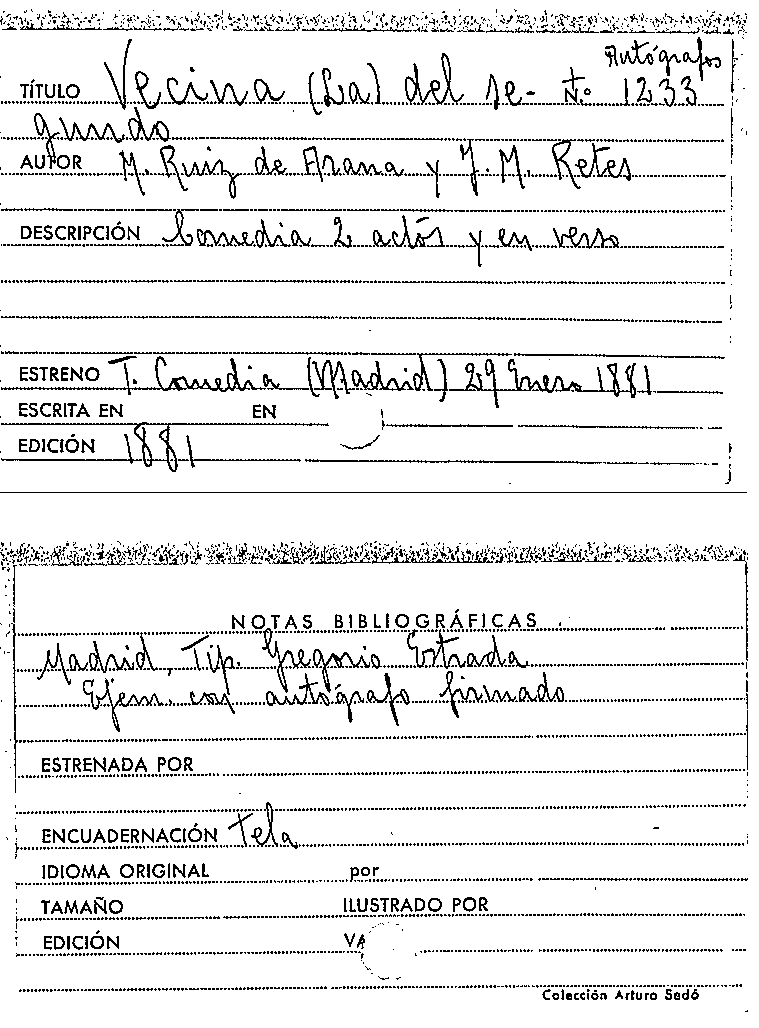 Autógrafos
TÍTULO Vecina (La) del se- N.º 1233
gundo
AUTOR M. Ruiz de Arana y J. M. Retes
DESCRIPCIÓN Comedia 2 actos y en verso
ESTRENO T. Comedia (Madrid) 29 Enero 1881
ESCRITA EN EN
EDICIÓN 1881
NOTAS BIBLIOGRÁFICAS
Madrid, Tip. Gregorio Estrada
Ejem. con autógrafo firmado
ESTRENADA POR
ENCUADERNACIÓN Tela
IDIOMA ORIGINAL por
TAMAÑO ILUSTRADO POR
EDICIÓN
Colección Arturo Sedó